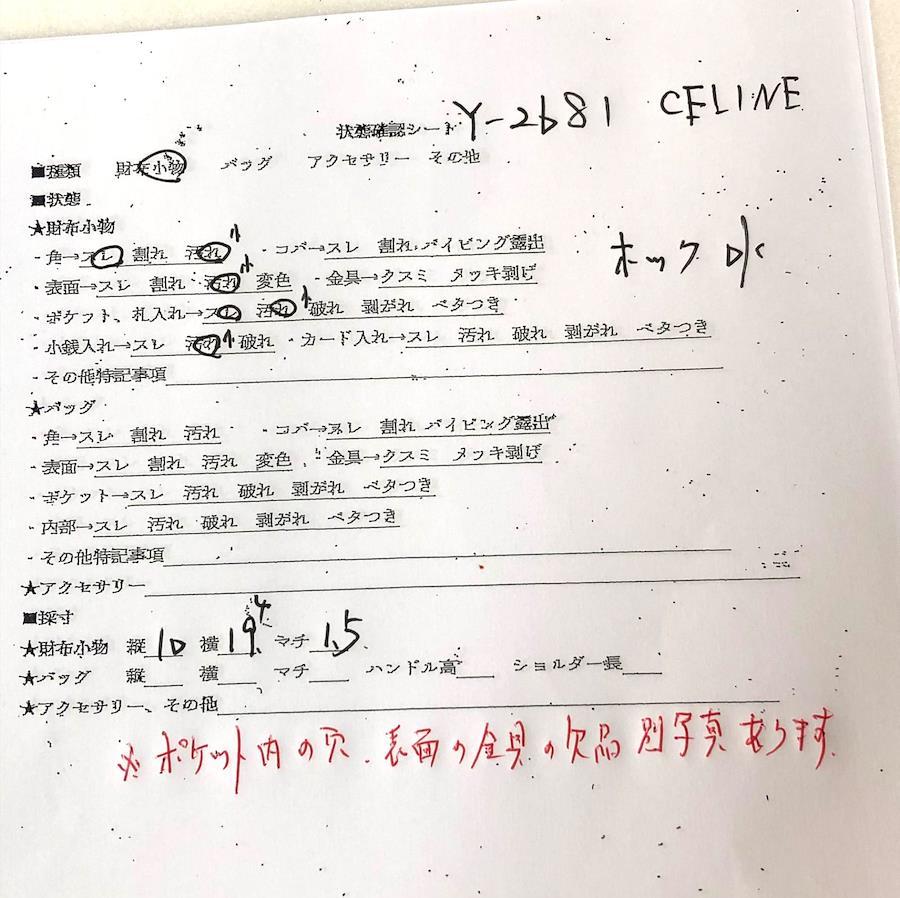 状態確認シート Y-2681 CELINE
■種類 財布小物 バッグ アクセサリー その他
■状態
★財布小物
・角→スレ 割れ 汚れ 小 ・コバ→スレ 割れ パイピング露出
・表面→スレ 割れ 汚れ 小 変色 ・金具→クスミ メッキ剥げ
ホック
・ポケット、札入れ→スレ 汚れ 小 破れ 剥がれ ベタつき
・小銭入れ→スレ 汚れ 小 破れ ・カード入れ→スレ 汚れ 破れ 剥がれ ベタつき
・その他特記事項
★バッグ
・角→スレ 割れ 汚れ ・コバ→スレ 割れ パイピング露出
・表面→スレ 割れ 汚れ 変色 ・金具→クスミ メッキ剥げ
・ポケット→スレ 汚れ 破れ 剥がれ ベタつき
・内部→スレ 汚れ 破れ 剥がれ ベタつき
・その他特記事項
★アクセサリー
■採寸
★財布小物 縦 10 横 19.4 マチ 1.5
★バッグ 縦 横 マチ ハンドル高 ショルダー長
★アクセサリー、その他
※ポケット内の穴.表面の金具の欠品 別写真あります.